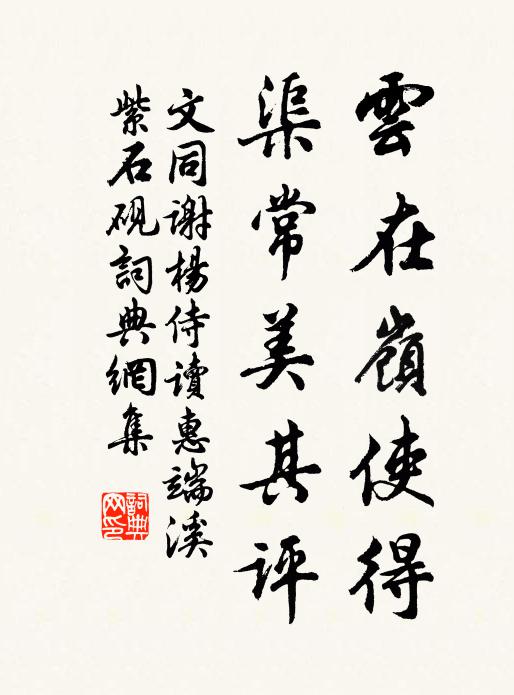 雲在嶺使得
渠常美其評
文同謝楊侍讀惠端溪
紫石硯詞典網集
詞典网印